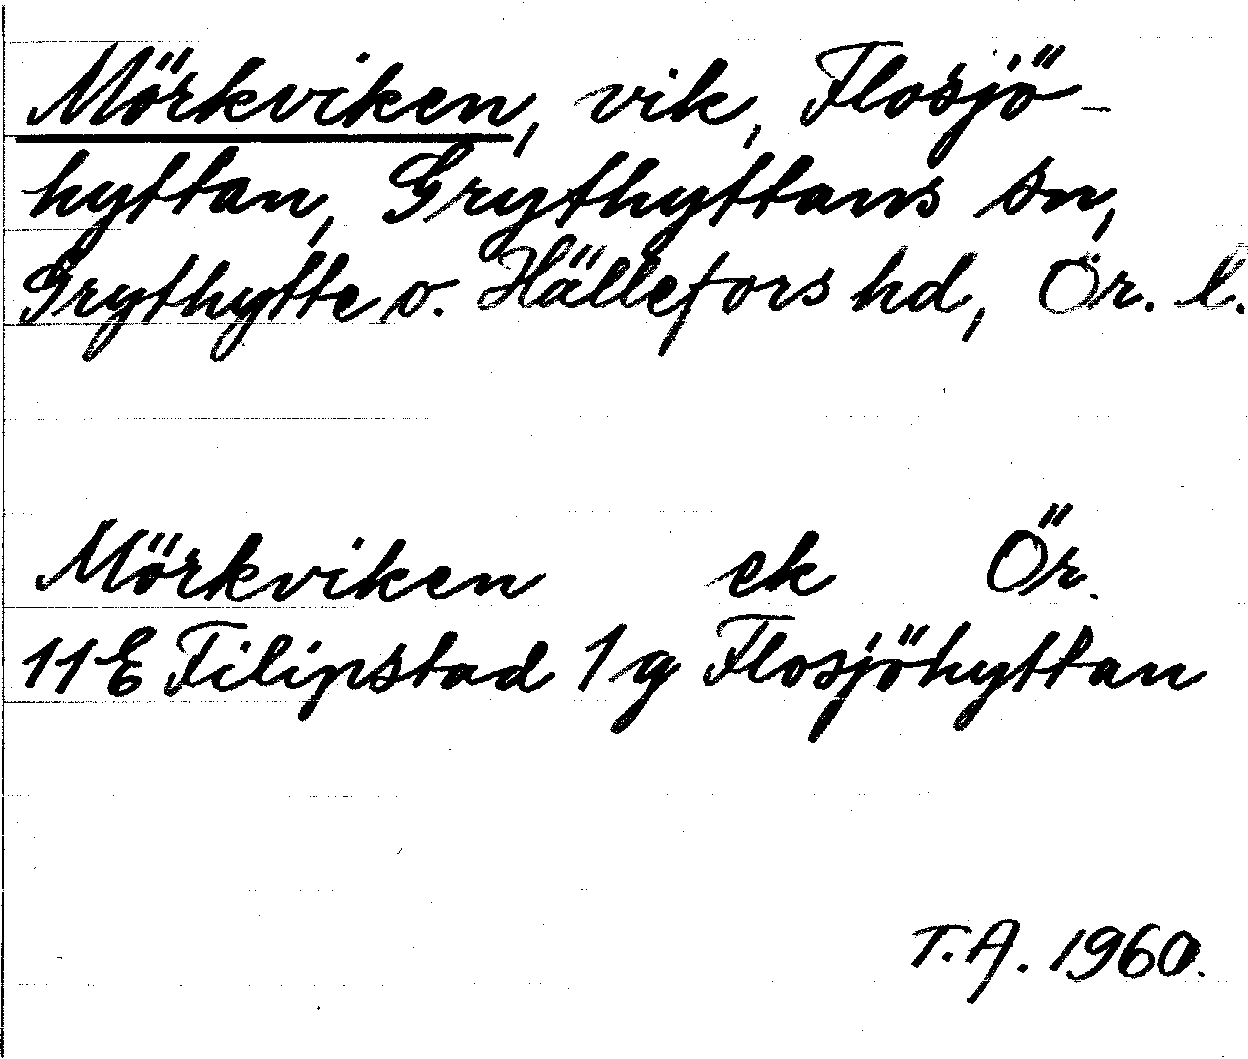 Mörkviken, vik, Flosjö-
hyttan, Grythyttans sn,
Grythytte o. Hällefors hd, Ör. l.
Mörkviken ek Ör.
11E Filipstad 1 g Flosjöhyttan
T.A. 1960.